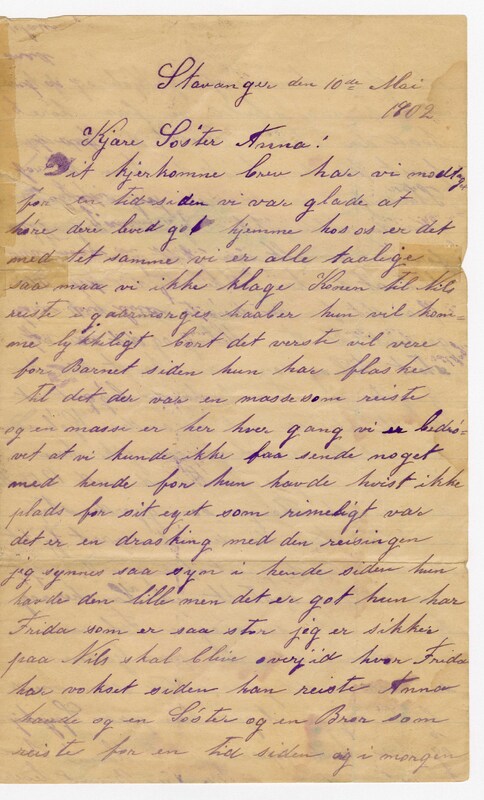 Stavanger den 10de Mai
1902
Kjære Söster Anna!
Dit kjerkomne brev har vi modtaget
for en tid siden vi var glade at
höre dere leved got hjemme hos os er det
med tet samme vi er alle taalige
saa maa vi ikke klage Konen til Nils
reiste i gaar morges haaber hun vil kom-
me lykkeligt bort det verste vil vere
for Barnet siden hun har flaske
til det der var en masse som reiste
og en masse er her hver gang vi er bedrö-
vet at vi kunde ikke faa sende noget
med hende for hun havde hvist ikke
plads for sit eget som rimeligt var
det er en drasking med den reisingen
jeg synnes saa syn i hende siden hun
havde den lille men det er got hun har
Frida som er saa stor jeg er sikker
paa Nils skal blive overjid hvor Frida
har vokset siden han reiste Anna
havde og en Söster og en Bror som
reiste for en tid siden og i morgen